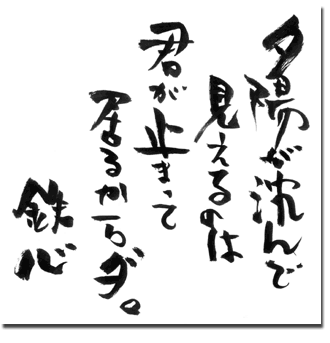 夕陽が沈んで
見えるのは
君が止まって
居るからダ。
鉄心